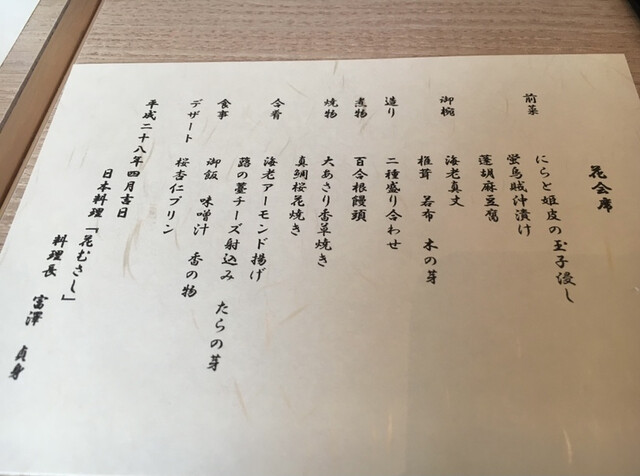 花会席
前菜 にらと姫皮の玉子浸し
蛍烏賊沖漬け
蓬胡麻豆腐
御椀 海老真丈
椎茸 若布 木の芽
造り 二種盛り合わせ
煮物 百合根饅頭
焼物 大あさり香草焼き
真鯛桜花焼き
合肴 海老アーモンド揚げ
蕗の薹チーズ射込み たらの芽
食事 御飯 味噌汁 香の物
デザート 桜杏仁プリン
平成二十八年四月吉日
日本料理「花むさし」
料理長 富澤 貞身